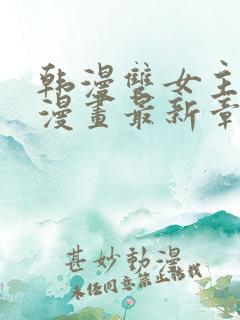 韩漫雙女主
漫畫最新章
甚妙動漫
未经同意禁止转载